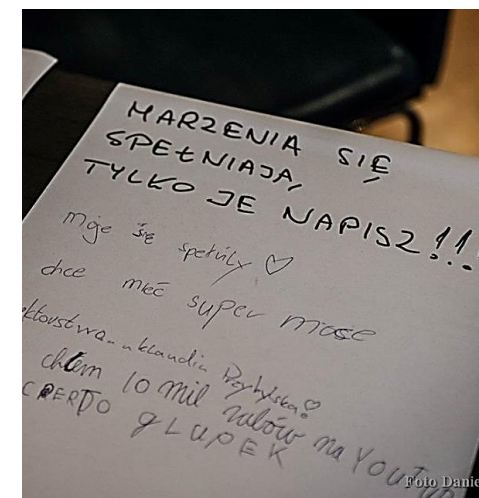 MARZENIA SIĘ
SPEŁNIAJĄ,
TYLKO JE NAPISZ!!!
moje się spełniły ♡
chce mieć super moce
Klaudia Przybylska ♡
chcem 10 mil subów na YouTub
GLUPEK
Foto Danie